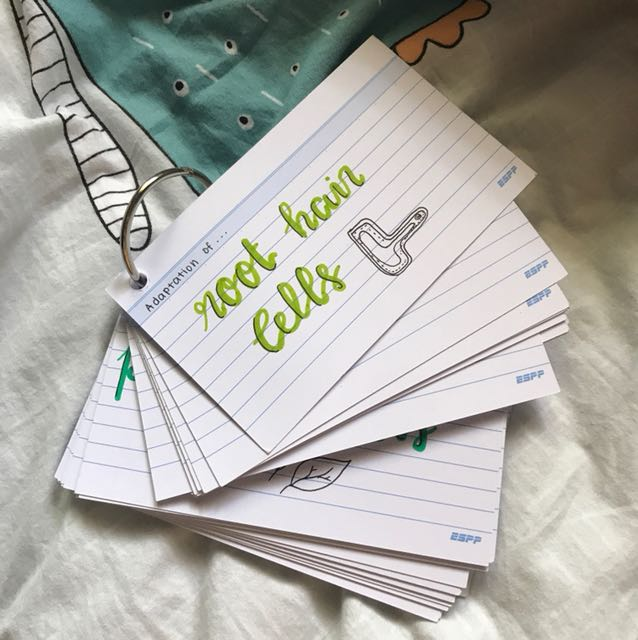 Adaptation of...
root hair
cells
ESPP
ESPP
ESPP
ESPP
ESPP